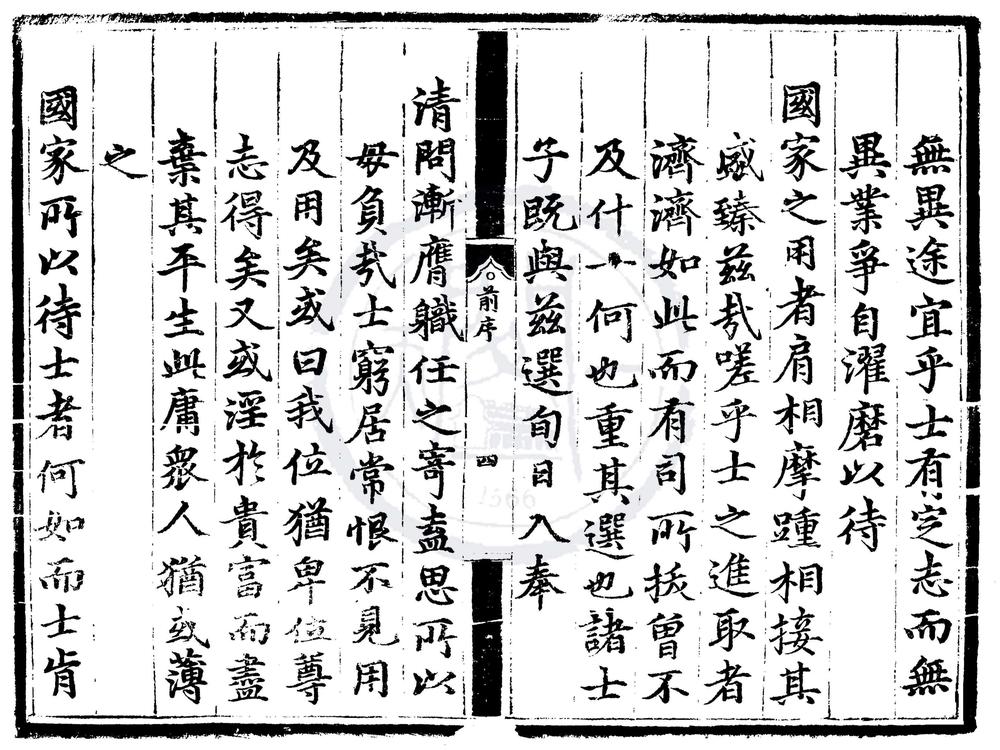 無異途宜乎士有定志而無
異業爭自濯磨以待
國家之用者肩相摩踵相接其
盛臻茲哉嗟乎士之進取者
濟濟如此而有司所拔曾不
及什一何也重其選也諸士
子既與茲選旬日入奉
前序
四
清問漸膺職任之寄盍思所以
毋負哉士窮居常恨不見用
及用矣或曰我位猶卑位尊
志得矣又或淫於貴富而盡
棄其平生此庸衆人猶或薄
之
國家所以待士者何如而士肯
1566